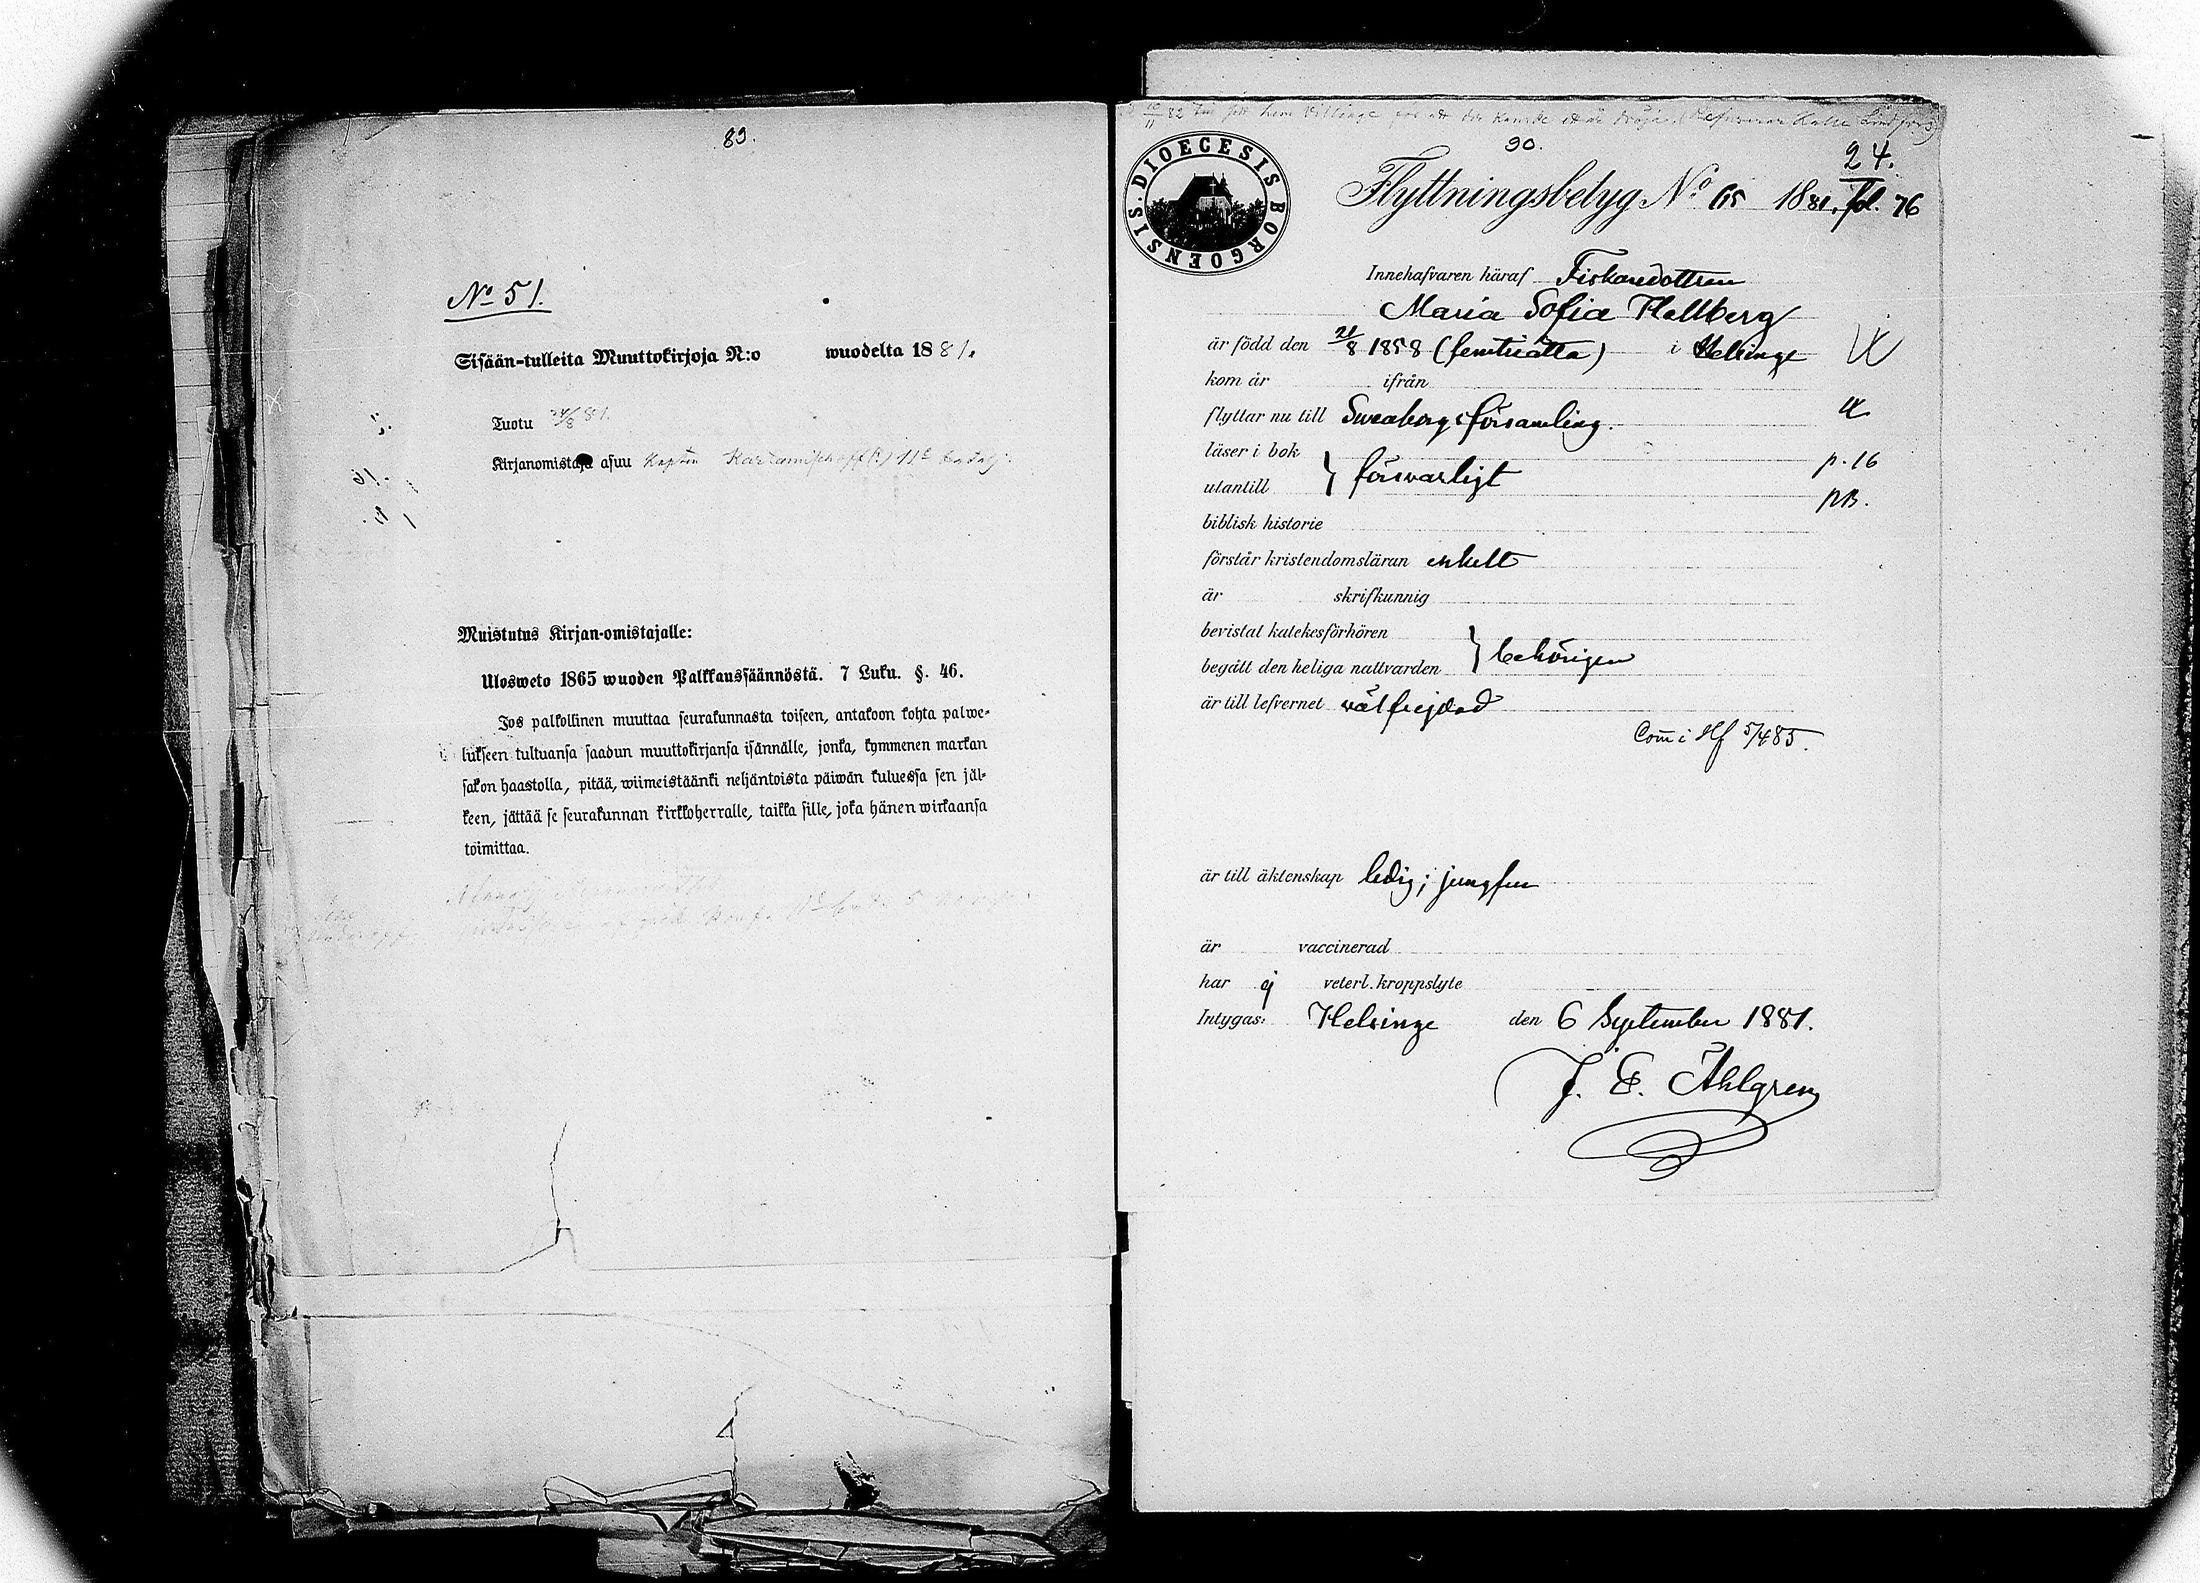 89.
No 51.
Sisään-tulleita Muuttokirjoja N:o wuodelta 1881.
Tuotu 24/8 81.
Kirjanomistaja asuu Kapten
Muistutus Kirjan-omistajalle:
Ulosweto 1865 wuoden Palkkaussäännöstä. 7 Luku. §. 46.
Jos palkollinen muuttaa seurakunnasta toiseen, antakoon kohta palwe-
lukseen tultuansa saadun muuttokirjansa isännälle, jonka, kymmenen markan
sakon haastolla, pitää, wiimeistäänki neljäntoista päiwän kuluessa sen jäl-
keen, jättää se seurakunnan kirkkoherralle, taikka sille, joka hänen wirkaansa
toimittaa.
10/11 82
90.
24.
DIOECESIS BORGOENSIS.
Flyttningsbetyg No 65 1881. fol. 76
Innehafvaren häraf Fiskaredottren
Maria Sofia Hellberg
är född den 21/8 1858 (femtioåtta) i Helsinge
kom år ifrån
flyttar nu till Sveaborgs församling.
läser i bok
utantill } försvarligt
p. 16
biblisk historie
förstår kristendomsläran enkelt
är skrifkunnig
bevistat katekesförhören
begått den heliga nattvarden } behörigen
är till lefvernet välfrejdad
Com i Hf 5/4 85.
är till äktenskap ledig; jungfru
är vaccinerad
har ej veterl. kroppslyte
Intygas: Helsinge den 6 September 1881.
J. E. Åhlgren